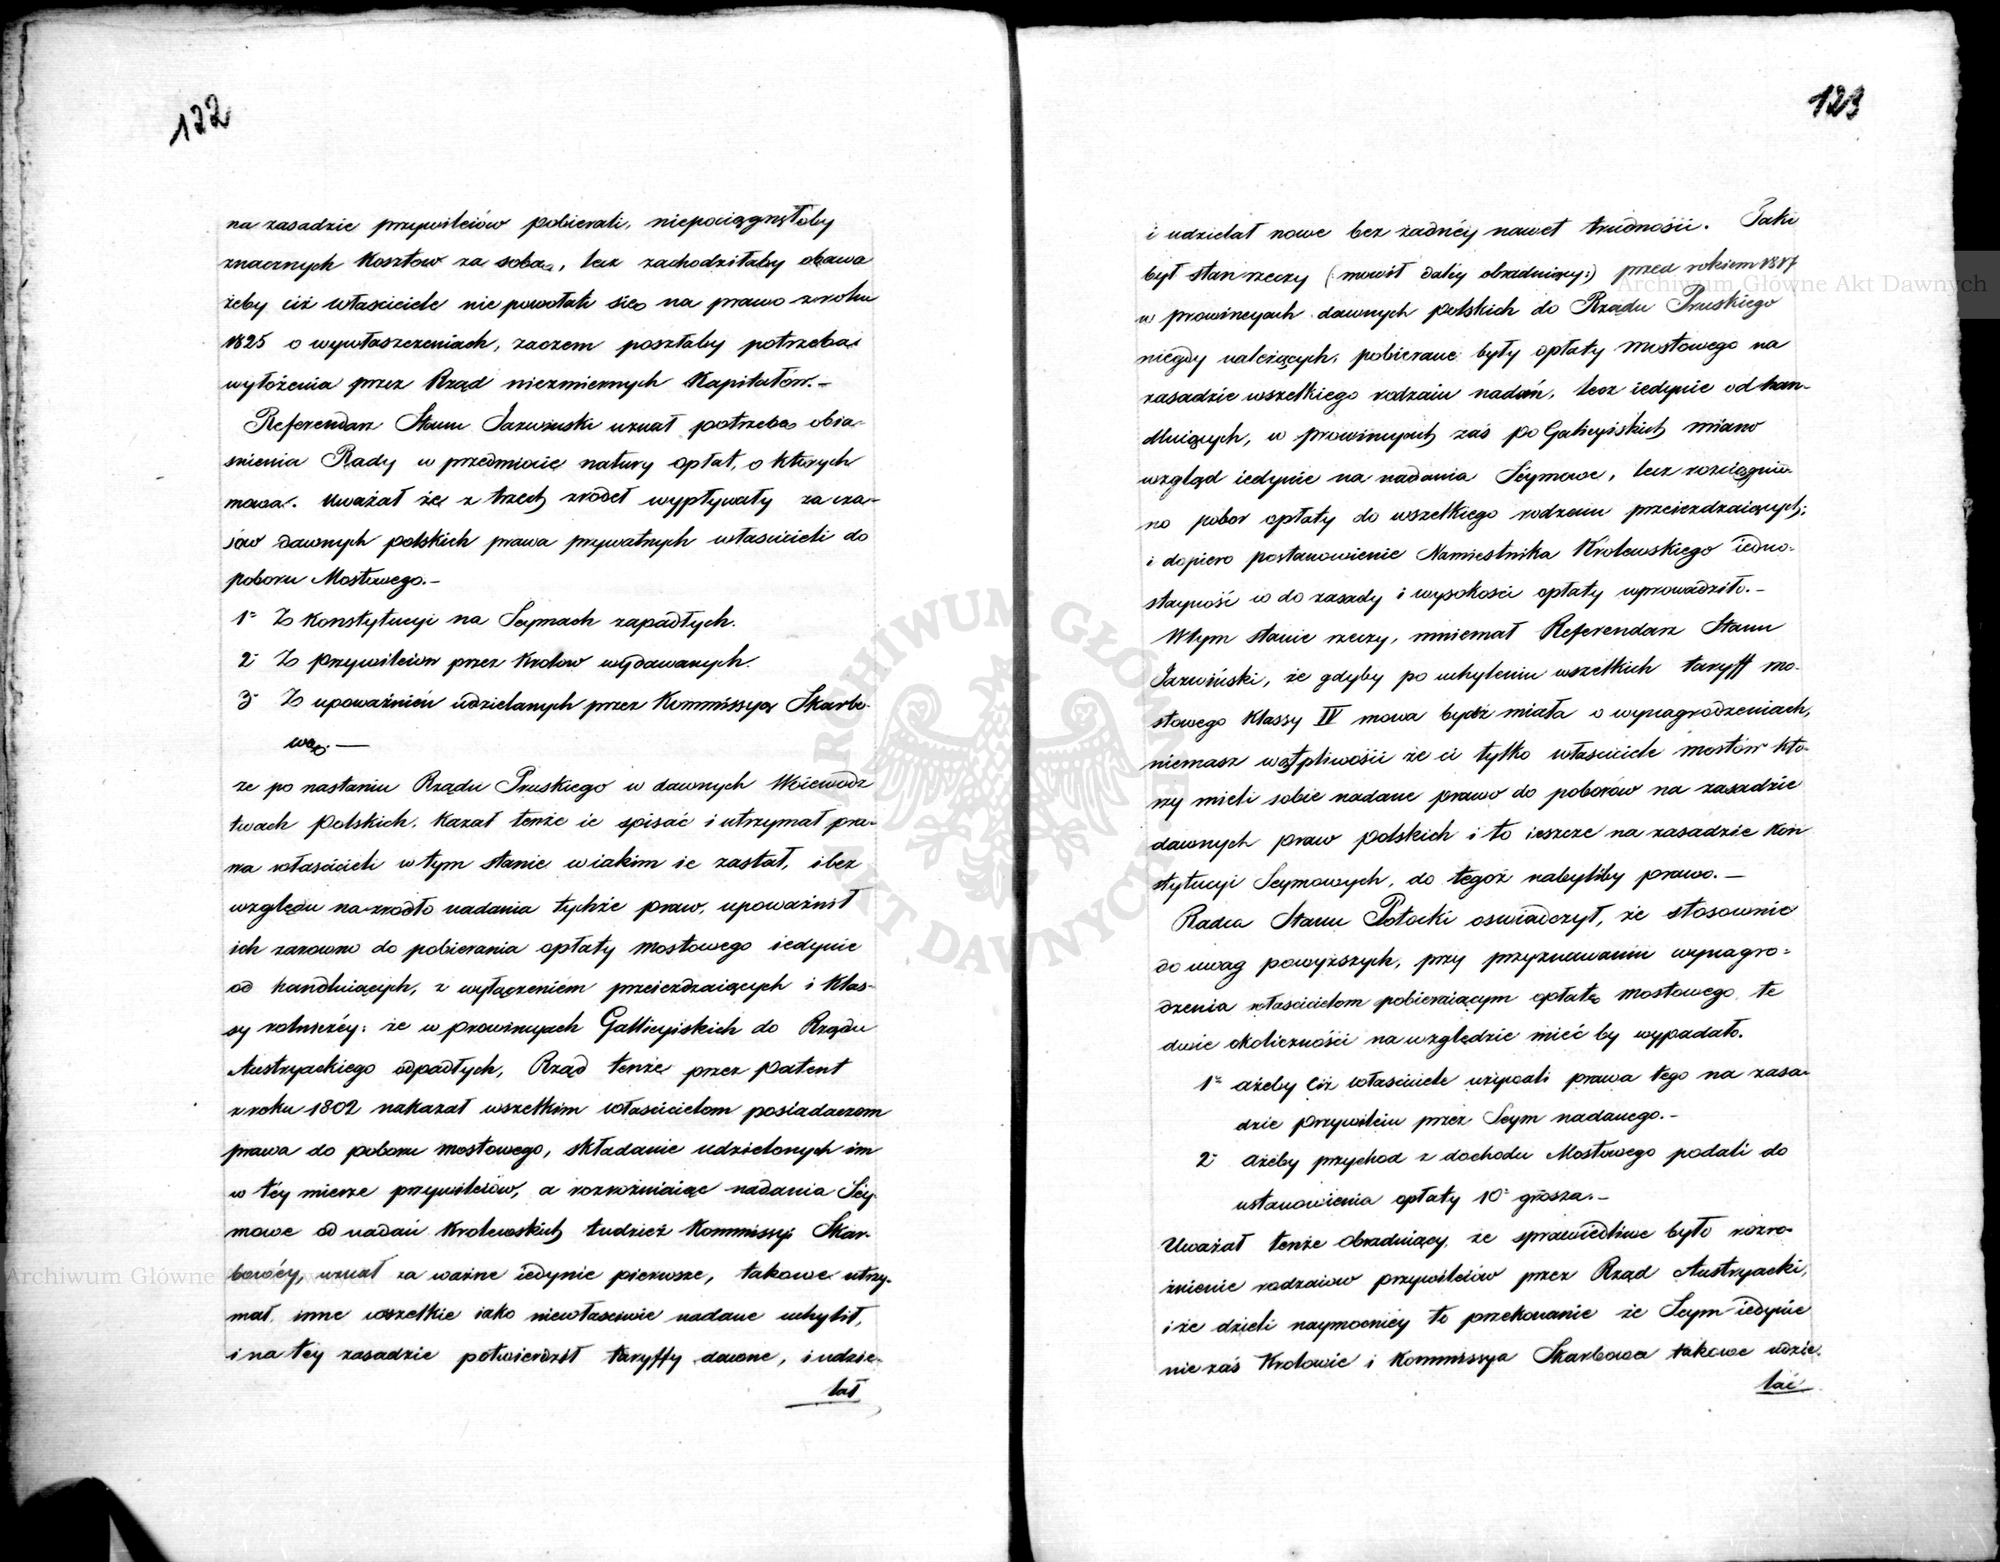 122
na zasadzie przywileiów pobierali, niepociągnęłoby
znacznych kosztow za sobą, lecz zachodziłaby obawa
żeby ciż właściciele nie powołali się na prawo z roku
1825 o wywłaszczeniach, zaczem poszłaby potrzeba
wyłożenia przez Rząd niezmiernych Kapitałow.–
Referendarz Stanu Jazwinski uznał potrzebę obia-
snienia Rady w przedmiocie natury opłat, o których
mowa. Uważał że z trzech zrodeł wypływały za cza-
sów dawnych polskich prawa prywatnych właścicieli do
poboru Mostowego.–
1° Z Konstytucyi na Seymach zapadłych.
2° Z przywileiow przez Krolow wydawanych.
3° Z upoważnień udzielanych przez Kommissyą Skarbo-
wą.—
że po nastaniu Rządu Pruskiego w dawnych Woiewodz
twach Polskich, Kazał tenże ie spisać i utrzymał pra-
wa właścicieli w tym stanie w iakim ie zastał, i bez
względu na zrodło nadania tychże praw, upoważnił
ich zarowno do pobierania opłaty mostowego iedynie
od handluiących, z wyłączeniem przeieżdzaiących i Klas-
sy rolniczéy: że w prowincyach Gallicyiskich do Rządu
Austryackiego odpadłych, Rząd tenże przez patent
z roku 1802 nakazał wszelkim właścicielom posiadaczom
prawa do poboru mostowego, składanie udzielonych im
w téy mierze przywileiów, a rozrożniaiąc nadania Sey-
mowe od nadań Krolewskich tudzież Kommissyi Skar-
bowéy, uznał za ważne iedynie pierwsze, takowe utrzy-
mał, inne wszelkie iako niewłaściwie nadane uchylił,
i na téy zasadzie potwierdził taryffy dawne, i udzie-
lał
123
i udzielał nowe bez żadnéy nawet trudności. Taki
był stan rzeczy (: mowił daléy obraduiący:) przed rokiem 1817
w prowincyach dawnych polskich do Rządu Pruskiego
niegdy należących, pobierane były opłaty mostowego na
zasadzie wszelkiego rodzaiu nadań, lecz iedynie od han-
dluiących, w prowincyach zaś po Galicyiskich miano
wzgląd iedynie na nadania Seymowe, lecz rozciągnio-
no pobor opłaty do wszelkiego rodzaiu przeieżdzaiących;
i dopiero postanowienie Namiestnika Krolewskiego iedno-
stayność co do zasady i wysokości opłaty uprowadziło.–
W tym stanie rzeczy, mniemał Referendarz Stanu
Jazwiński, że gdyby po uchyleniu wszelkich taryff mo-
stowego Klassy IV mowa bydź miała o wynagrodzeniach,
niemasz wątpliwości że ci tylko właściciele mostów któ-
rzy mieli sobie nadane prawo do poborów na zasadzie
dawnych praw polskich i to ieszcze na zasadzie Kon
stytucyi Seymowych, do tegoż nabyliby prawo.—
Radca Stanu Potocki oswiadczył, że stosownie
do uwag powyższych, przy przyznawaniu wynagro-
dzenia właścicielom pobieraiącym opłatę mostowego, te
dwie okoliczności na względzie mieć by wypadało.
1° ażeby ciż właściciele używali prawa tego na zasa-
dzie przywileiu przez Seym nadanego.–
2° Ażeby przychod z dochodu Mostowego podali do
ustanowienia opłaty 10° grosza.–
Uważał tenże Obraduiący, że sprawiedliwe było rozro-
żnienie rodzaiow przywileiów przez Rząd Austryacki,
i że dzieli naymocniéy to przekonanie że Seym iedynie
nie zaś Krolowie i Kommissya Skarbowa takowe udzie-
lać
Archiwum Główne Akt Dawnych
Archiwum Główne Akt Dawnych
ARCHIWUM GŁÓWNE AKT DAWNYCH